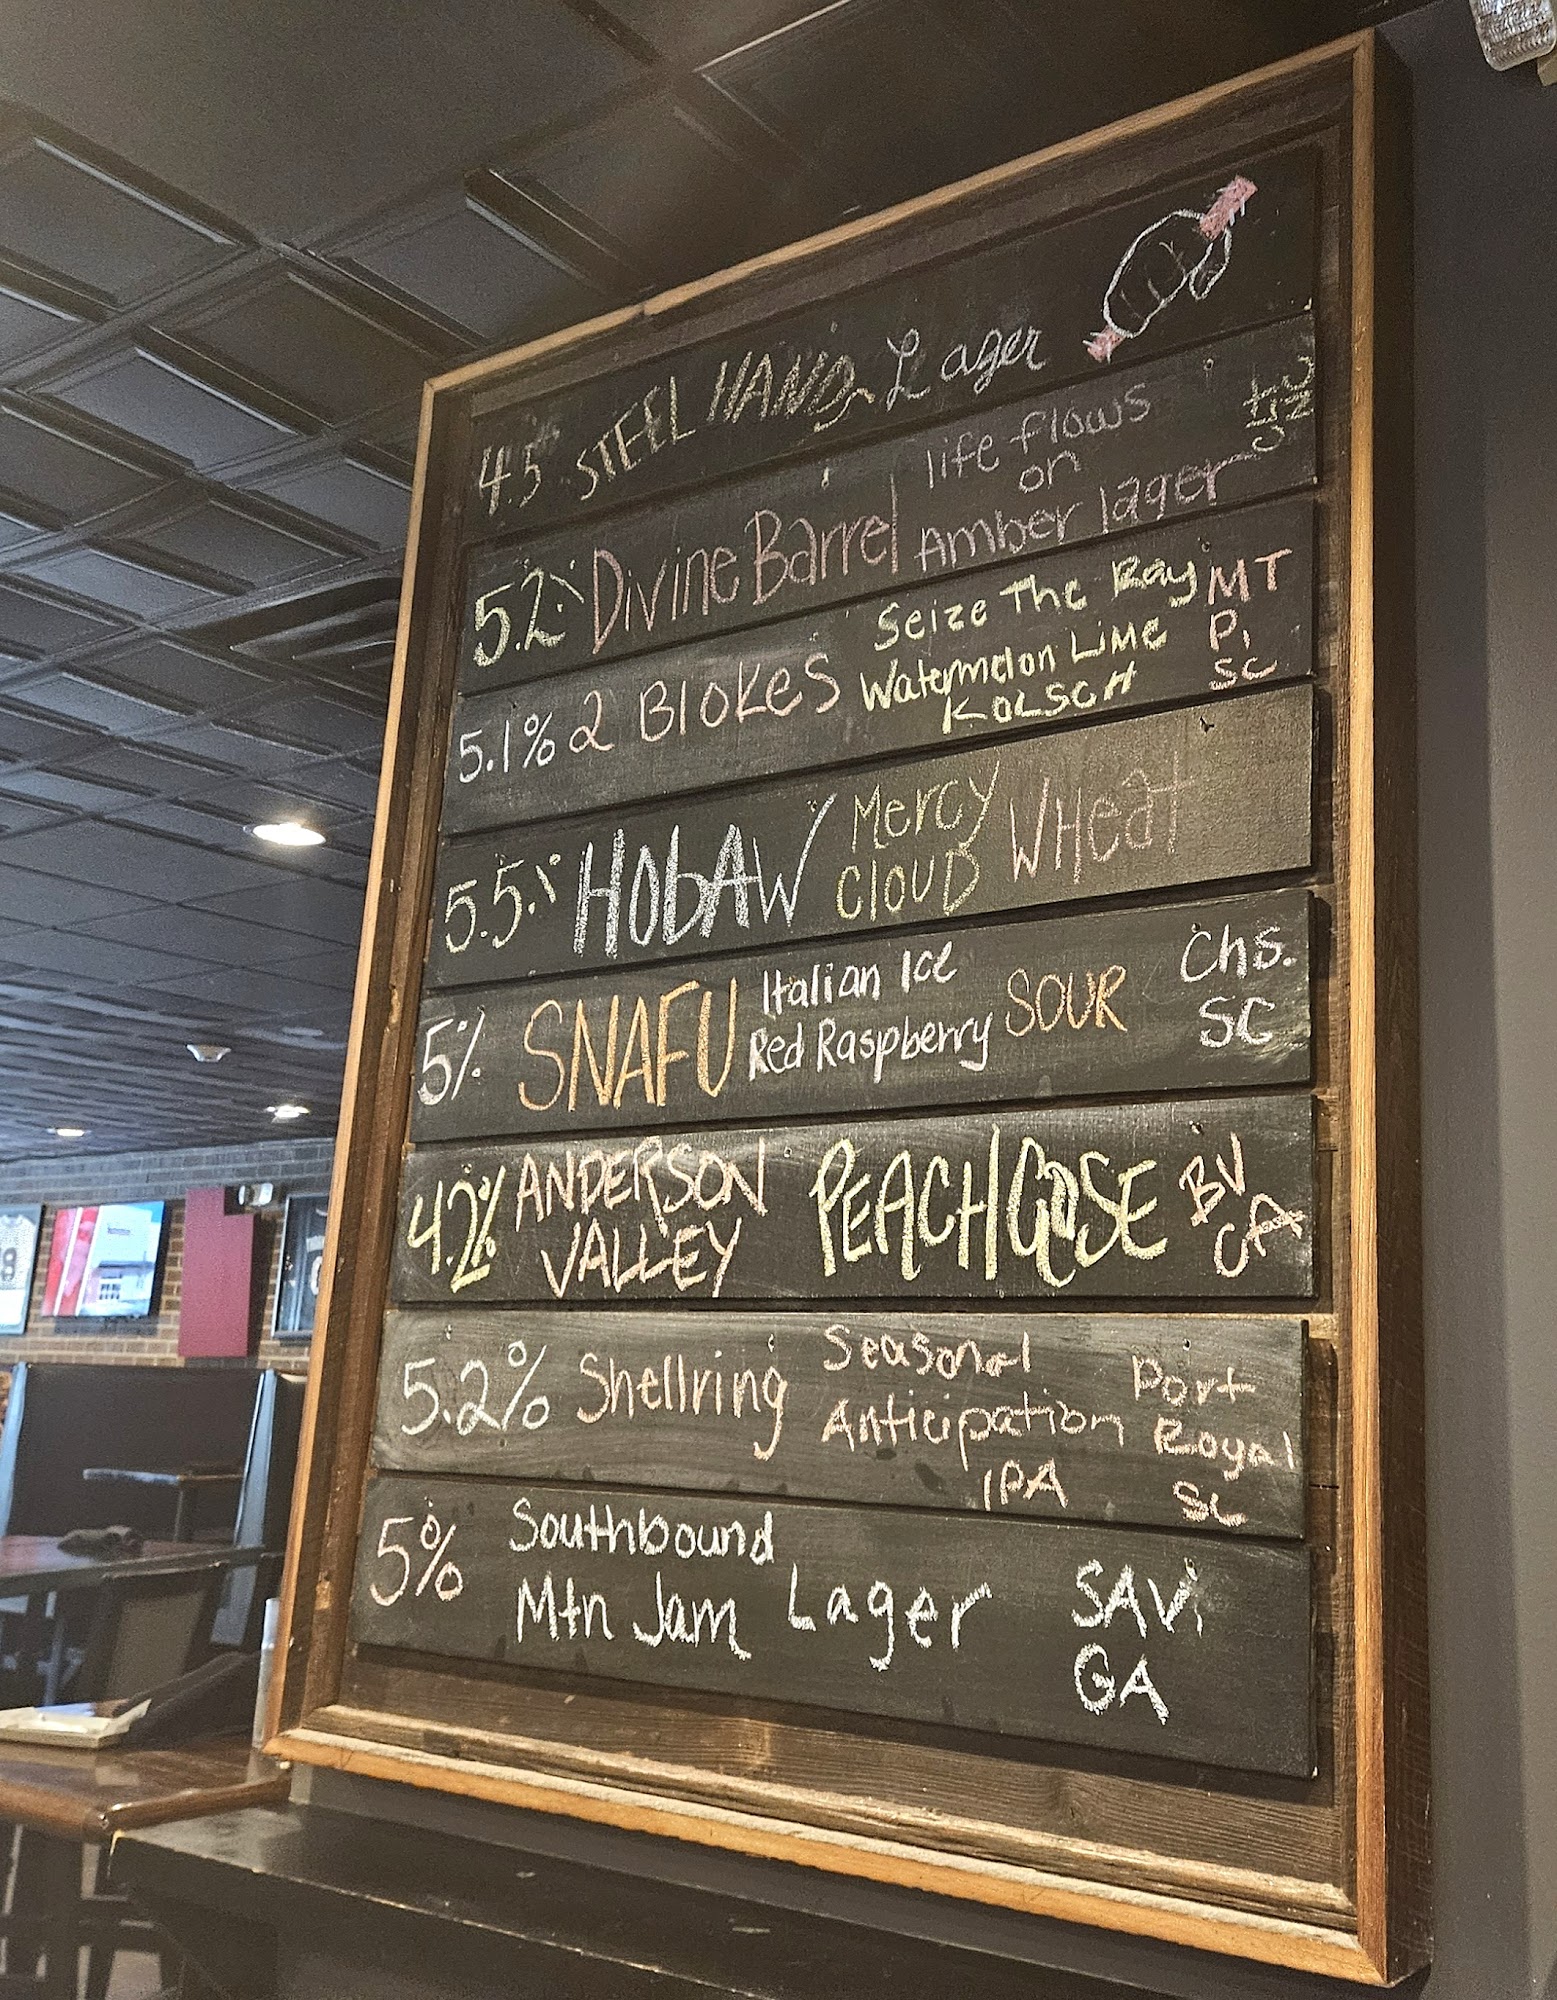 4.5 STEEL HAND Lager
5.2% Divine Barrel life flows on Amber lager CLT NC
5.1% 2 Blokes Seize The Ray Watermelon Lime KOLSCH MT P, SC
5.5% HobAW Mercy CLOUD WHeat
5% SNAFU Italian Ice Red Raspberry SOUR Chs. SC
4.2% ANDERSON VALLEY PEACH GOSE BV CA
5.2% Shellring Seasonal Anticipation IPA Port Royal SC
5% Southbound Mtn Jam Lager SAV, GA